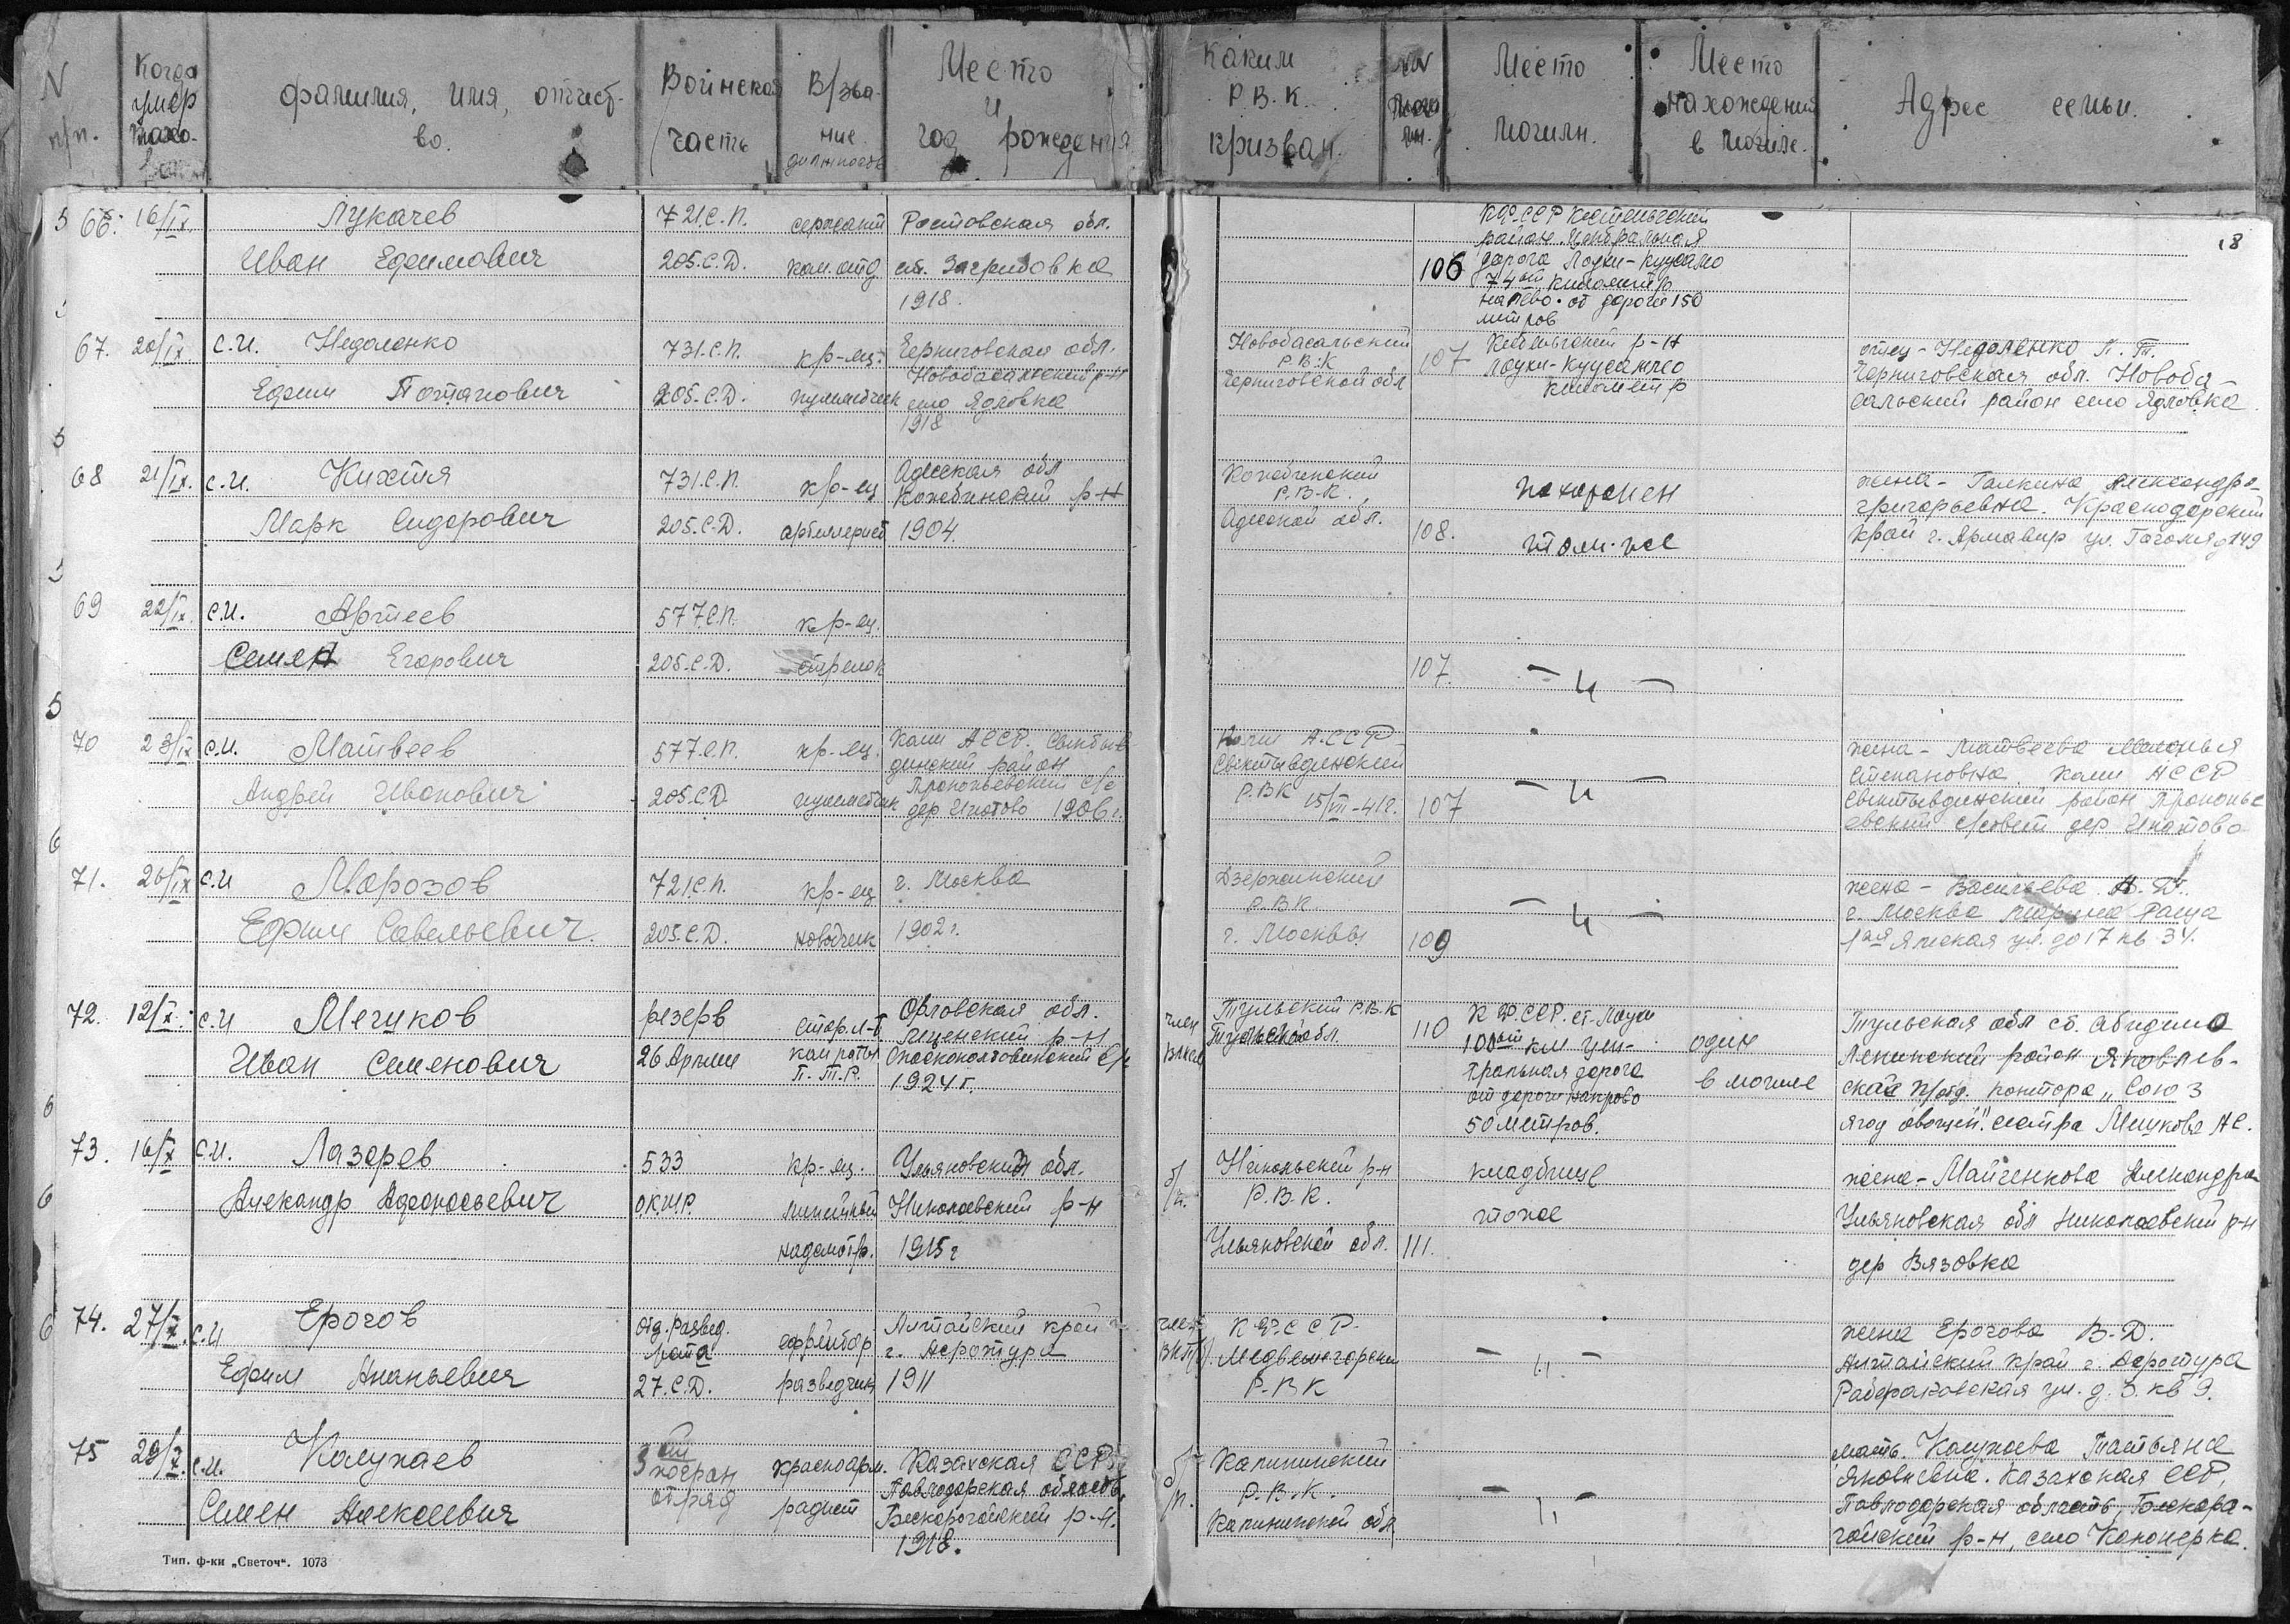 N п/п.
Когда умер похо-
фамилия, имя, отчест-во.
Войнская часть
В/зва-ние должность
Место и год рождения
Каким Р.В.К. призван.
NN моги лы.
Место могилы.
Место нахождения в могиле.
Адрес семьи.
18
66. 16/IX.
Лукачев
Иван Ефимович
721 С.П.
205. С.Д.
сержант
ком. отд
Ростовская обл.
ст. Загридовка
1918.
106
К.Ф.ССР Кестеньгский
район. Центральная
дорога Лоухи-Куусамо
74ый километр
налево от дороги 150
метров
67. 20/IX
с.и. Недоленко
Ефим Потапович
731. С.П.
205. С.Д.
кр-ец.
пулеметчик
Черниговская обл.
Новобасанский р-н
село Ядловка
1918
Новобасальский
Р.В.К
Черниговской обл
107
Кестеньгский р-н
Лоухи-Куусамо
километр
отец - Недоленко П. Т.
Черниговская обл. Новоба-
сальский район село Ядловка.
68 21/IX.
с.и. Кихтя
Марк Сидорович
731. С.П.
205. С.Д.
кр-ец
артиллерист
Одесская обл
Кожебинский р-н
1904.
Кожебинский
Р.В.К.
Одесской обл.
108.
похоронен
там-же
жена - Галкина Александра
Григорьевна. Краснодарский
край г. Армавир ул. Гоголя д 149
69 22/IX.
с.и. Артеев
Семен Егорович
577. С.П.
205. С.Д.
кр-ец.
стрелок
107.
— и —
70 23/IX
с.и. Матвеев
Андрей Иванович
577. С.П.
205. С.Д.
кр-ец.
пулеметчик
Коми АССР. Сыктыв
динский район
Прокопьевский с/с
дер Игнатово 1906 г.
Коми А.ССР
Сыктывдинский
Р.В.К 15/VII-41 г.
107
— и —
жена - Матвеева Маланья
Степановна. Коми АССР
Сыктывдинский район Прокопье
евский с/совет дер Игнатово
71. 26/IX
с.и Морозов
Ефим Савельевич.
721. С.П.
205. С.Д.
кр-ец
наводчик
г. Москва
1902 г.
Дзержинский
Р.В.К
г. Москвы
109
— и —
жена - Васильева
г. Москва Марьина Роща
1ая Ямская ул. до 17 кв 34.
72. 12/X.
с.и Мешков
Иван Семенович
резерв
26 Армии
стар. л-т
ком роты
П.Т.Р.
Орловская обл.
р-н
1924 г.
член
ВЛКСМ
Тульский Р.В.К
Тульской обл.
110
К.Ф.ССР. ст. Лоухи
100ый км цен-
тральная дорога
от дороги направо
50 метров.
один
в могиле
Тульская обл ст. Обидимо
Ленинский район Яковлев-
ская п/отд. контора „Союз
ягод овощей". сестра Мешкова А С.
73. 16/X
с.и. Лазарев
Александр Афанасьевич
533
О.К.Ш.Р.
кр-ец.
линейный
надсмотр.
Ульяновский обл.
Николаевский р-н
1915 г
б/п.
Никольский р-н
Р.В.К.
Ульяновской обл.
111.
кладбище
тоже
жена - Майченкова Александра
Ульяновская обл Николаевский р-н
дер Вязовка
74. 27/X.
с.и Ерогов
Ефим Ананьевич
отд. развед.
рота
27. С.Д.
ефрейтор
разведчик
Алтайский край
г. Аеротура
1911
член
ВКП/б/.
К.Ф.ССР.
Медвежегорский
Р.В.К
— и —
жена Ерогова В. Д.
Алтайский край г. Аеротура
ул. д. 3. кв 9.
75 29/X.
с.и. Колупаев
Семен Алексеевич
3ий
погран
отряд
красноарм.
радист
Казахская ССР
Павлодарская область,
Бескарагайский р-н.
1918.
б/п.
Калининский
Р.В.К.
Калининской обл
— и —
мать Колупаева Татьяна
Яковлевна. Казахская ССР,
Павлодарская область,
гайский р-н, село Кононерка.
Тип. ф-ки „Светоч". 1073